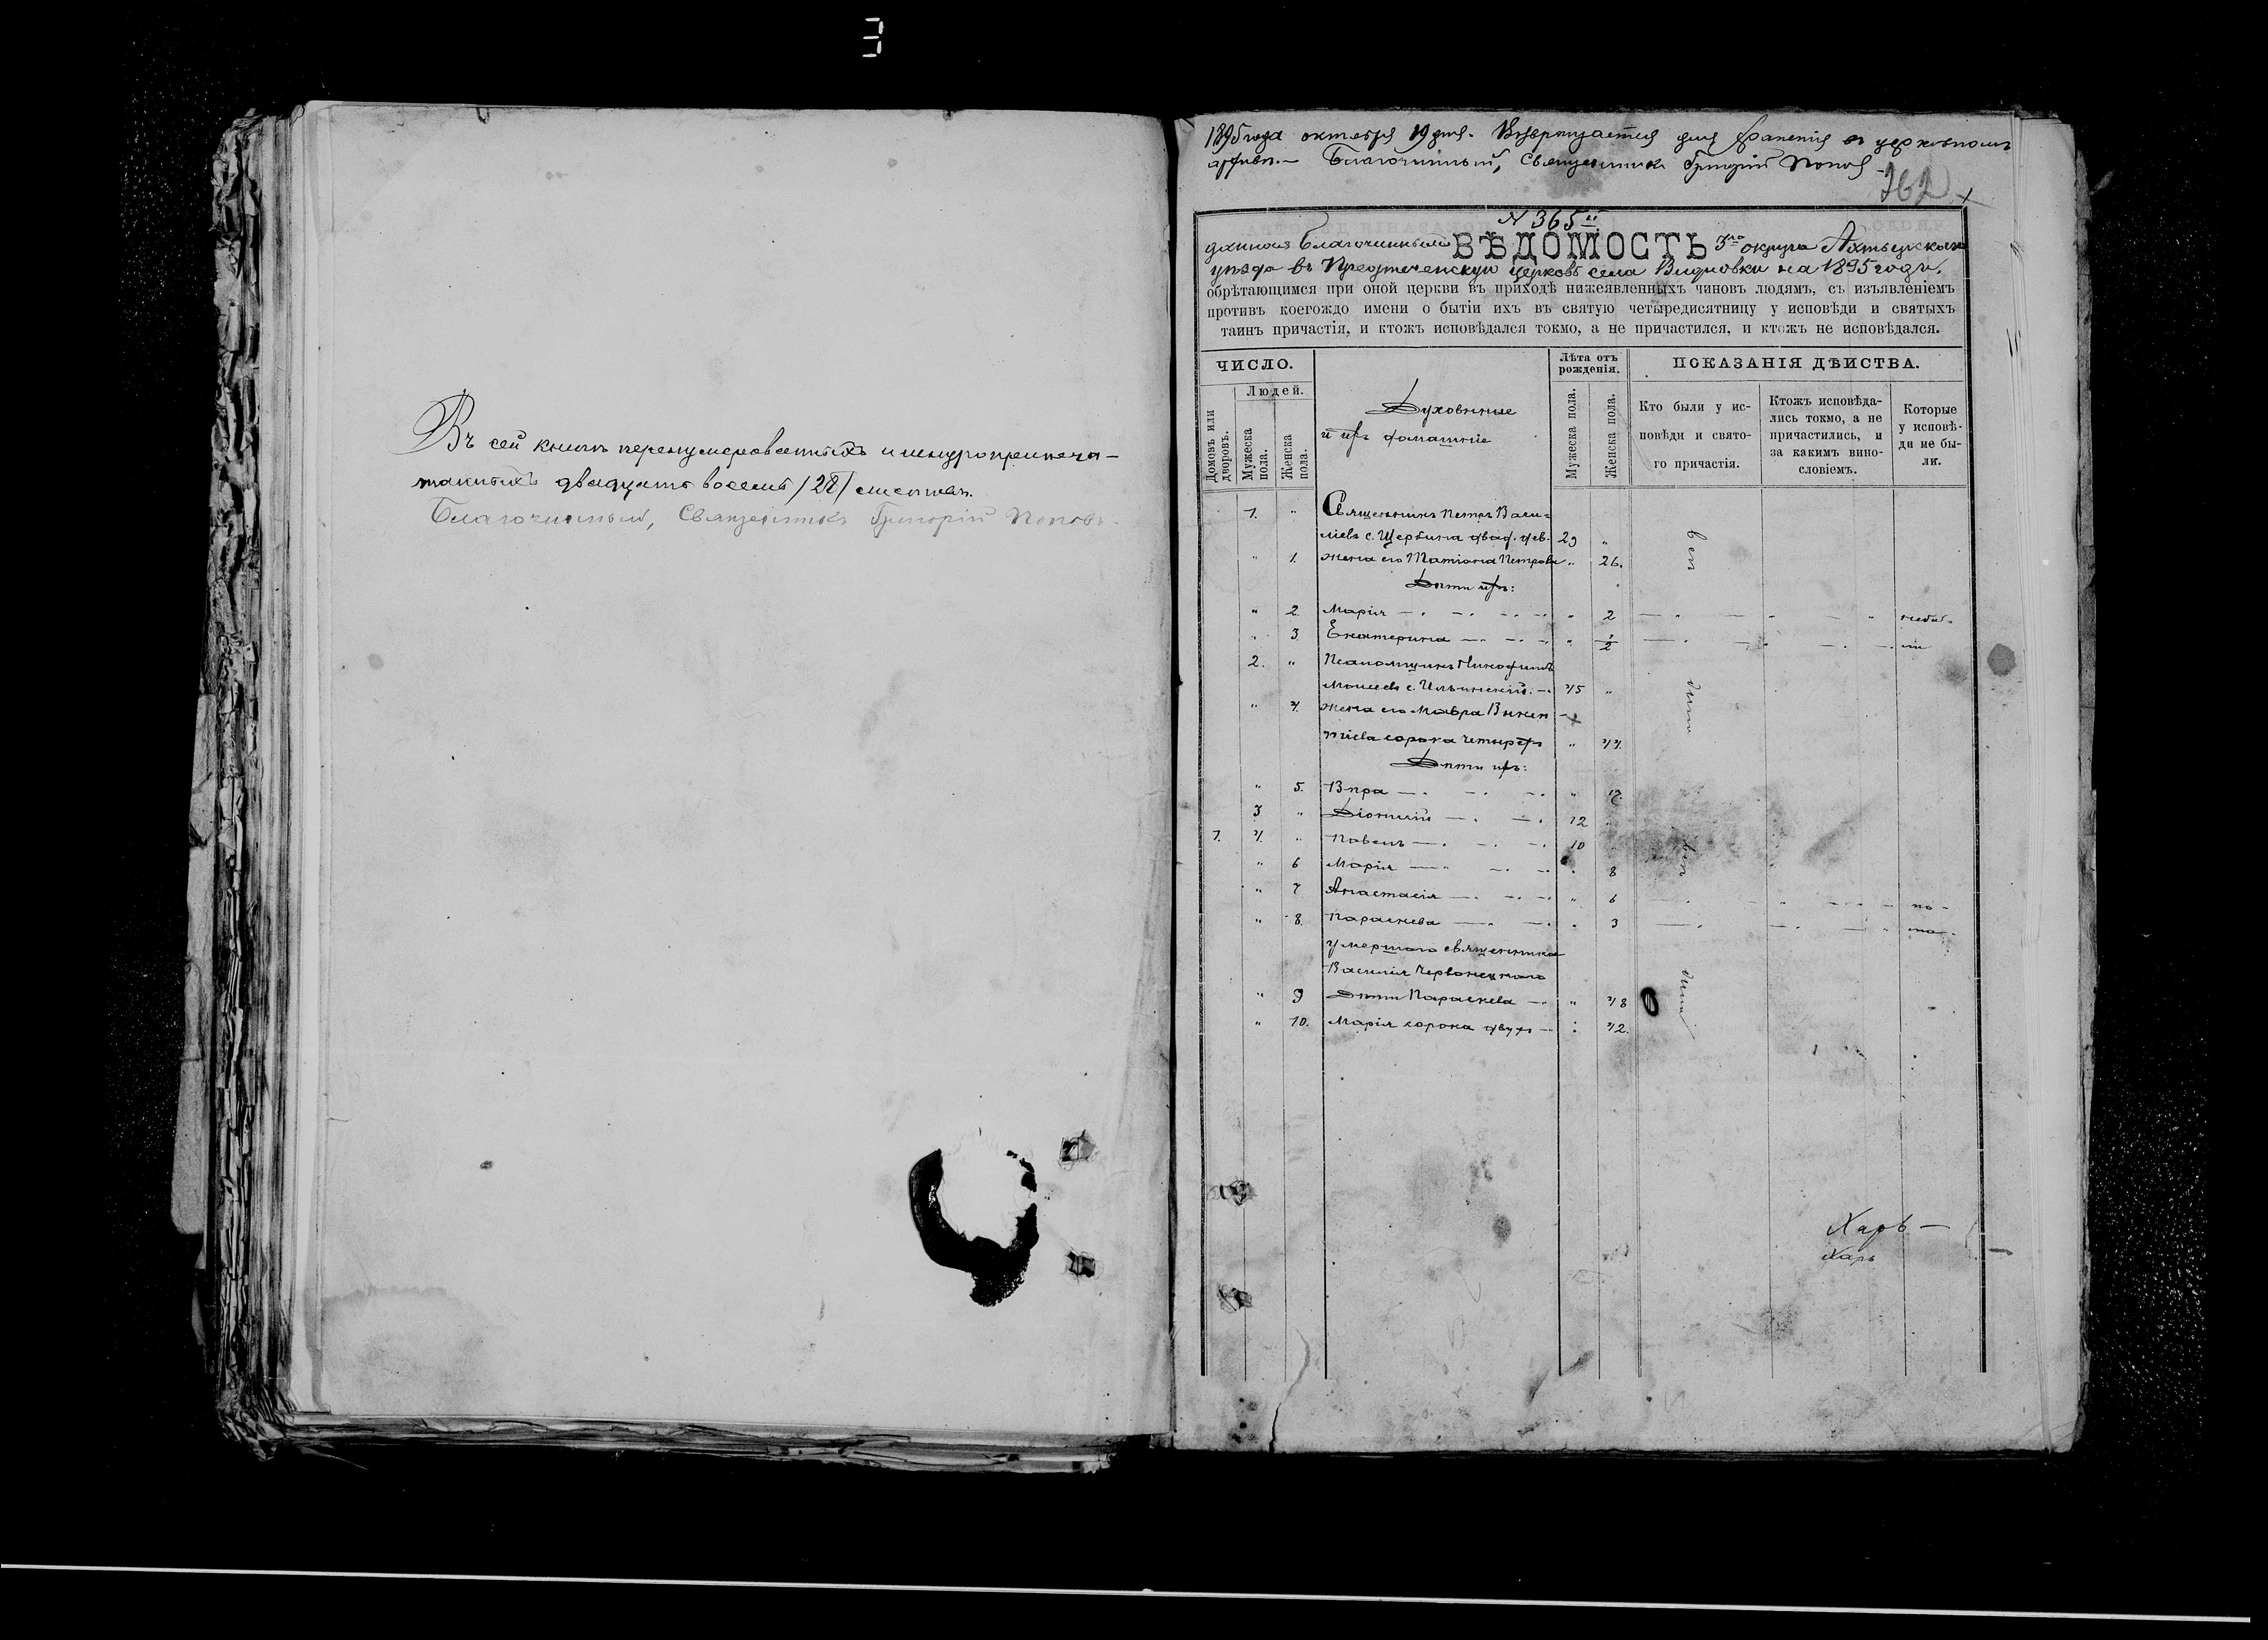 3
Въ сей книгѣ перенумерованныхъ и шнуроприпеча-
танныхъ двадцать восемь /28/ листовъ.
Благочинный, Священникъ Григорій Поповъ.
1895 года октября 19 дня. Возвращается для храненія въ церковномъ
архивѣ. — Благочинный, Священникъ Григорій Поповъ
362
№ 365й
данная Благочиннымъ ВѢДОМОСТЬ 3го округа Ахтырскаго
уѣзда въ Предтеченскую церковь села Видновки на 1895 годъ.
обрѣтающимся при оной церкви въ приходѣ нижеявленныхъ чиновъ людямъ, съ изъявленіемъ
противъ коегождо имени о бытіи ихъ въ святую четыредисятницу у исповѣди и святыхъ
таинъ причастія, и ктожъ исповѣдался токмо, а не причастился, и ктожъ не исповѣдался.
ЧИСЛО.
Домовъ или дворовъ.
Людей.
Мужеска пола.
Женска пола.
Духовные
и ихъ домашніе
Лѣта отъ рожденія.
Мужеска пола.
Женска пола.
ПОКАЗАНІЯ ДѢЙСТВА.
Кто были у ис-
повѣди и свято-
го причастія.
Ктожъ исповѣда-
лись токмо, а не
причастились, и
за какимъ вино-
словіемъ.
Которые
у исповѣ-
ди не бы-
ли.
1. " Священникъ Петръ Васи-
ліевъ с. Щербина двад. дев. 29 "
" 1. жена его Татіана Петрова " 26.
Дѣти ихъ:
" 2. Марія " 2 небы-
" 3. Екатерина " 1/2 ли
2. " Псаломщикъ Никодимъ
Моисеевъ с. Ильинскій 45 "
" 4. жена его Мавра Викен-
тіева сорока четырехъ " 44.
Дѣти ихъ:
" 5. Вѣра " 17.
3 " Діонисій 12 "
1. 4. " Павелъ 10
" 6 Марія " 8
" 7 Анастасія " 6
" 8. Параскева " 3
умершаго священника
Василія Червонецкаго
" 9 Дѣти Параскева " 48
" 10. Марія сорока двухъ 42.
всѣ
были
всѣ
были
Харь —
Харь